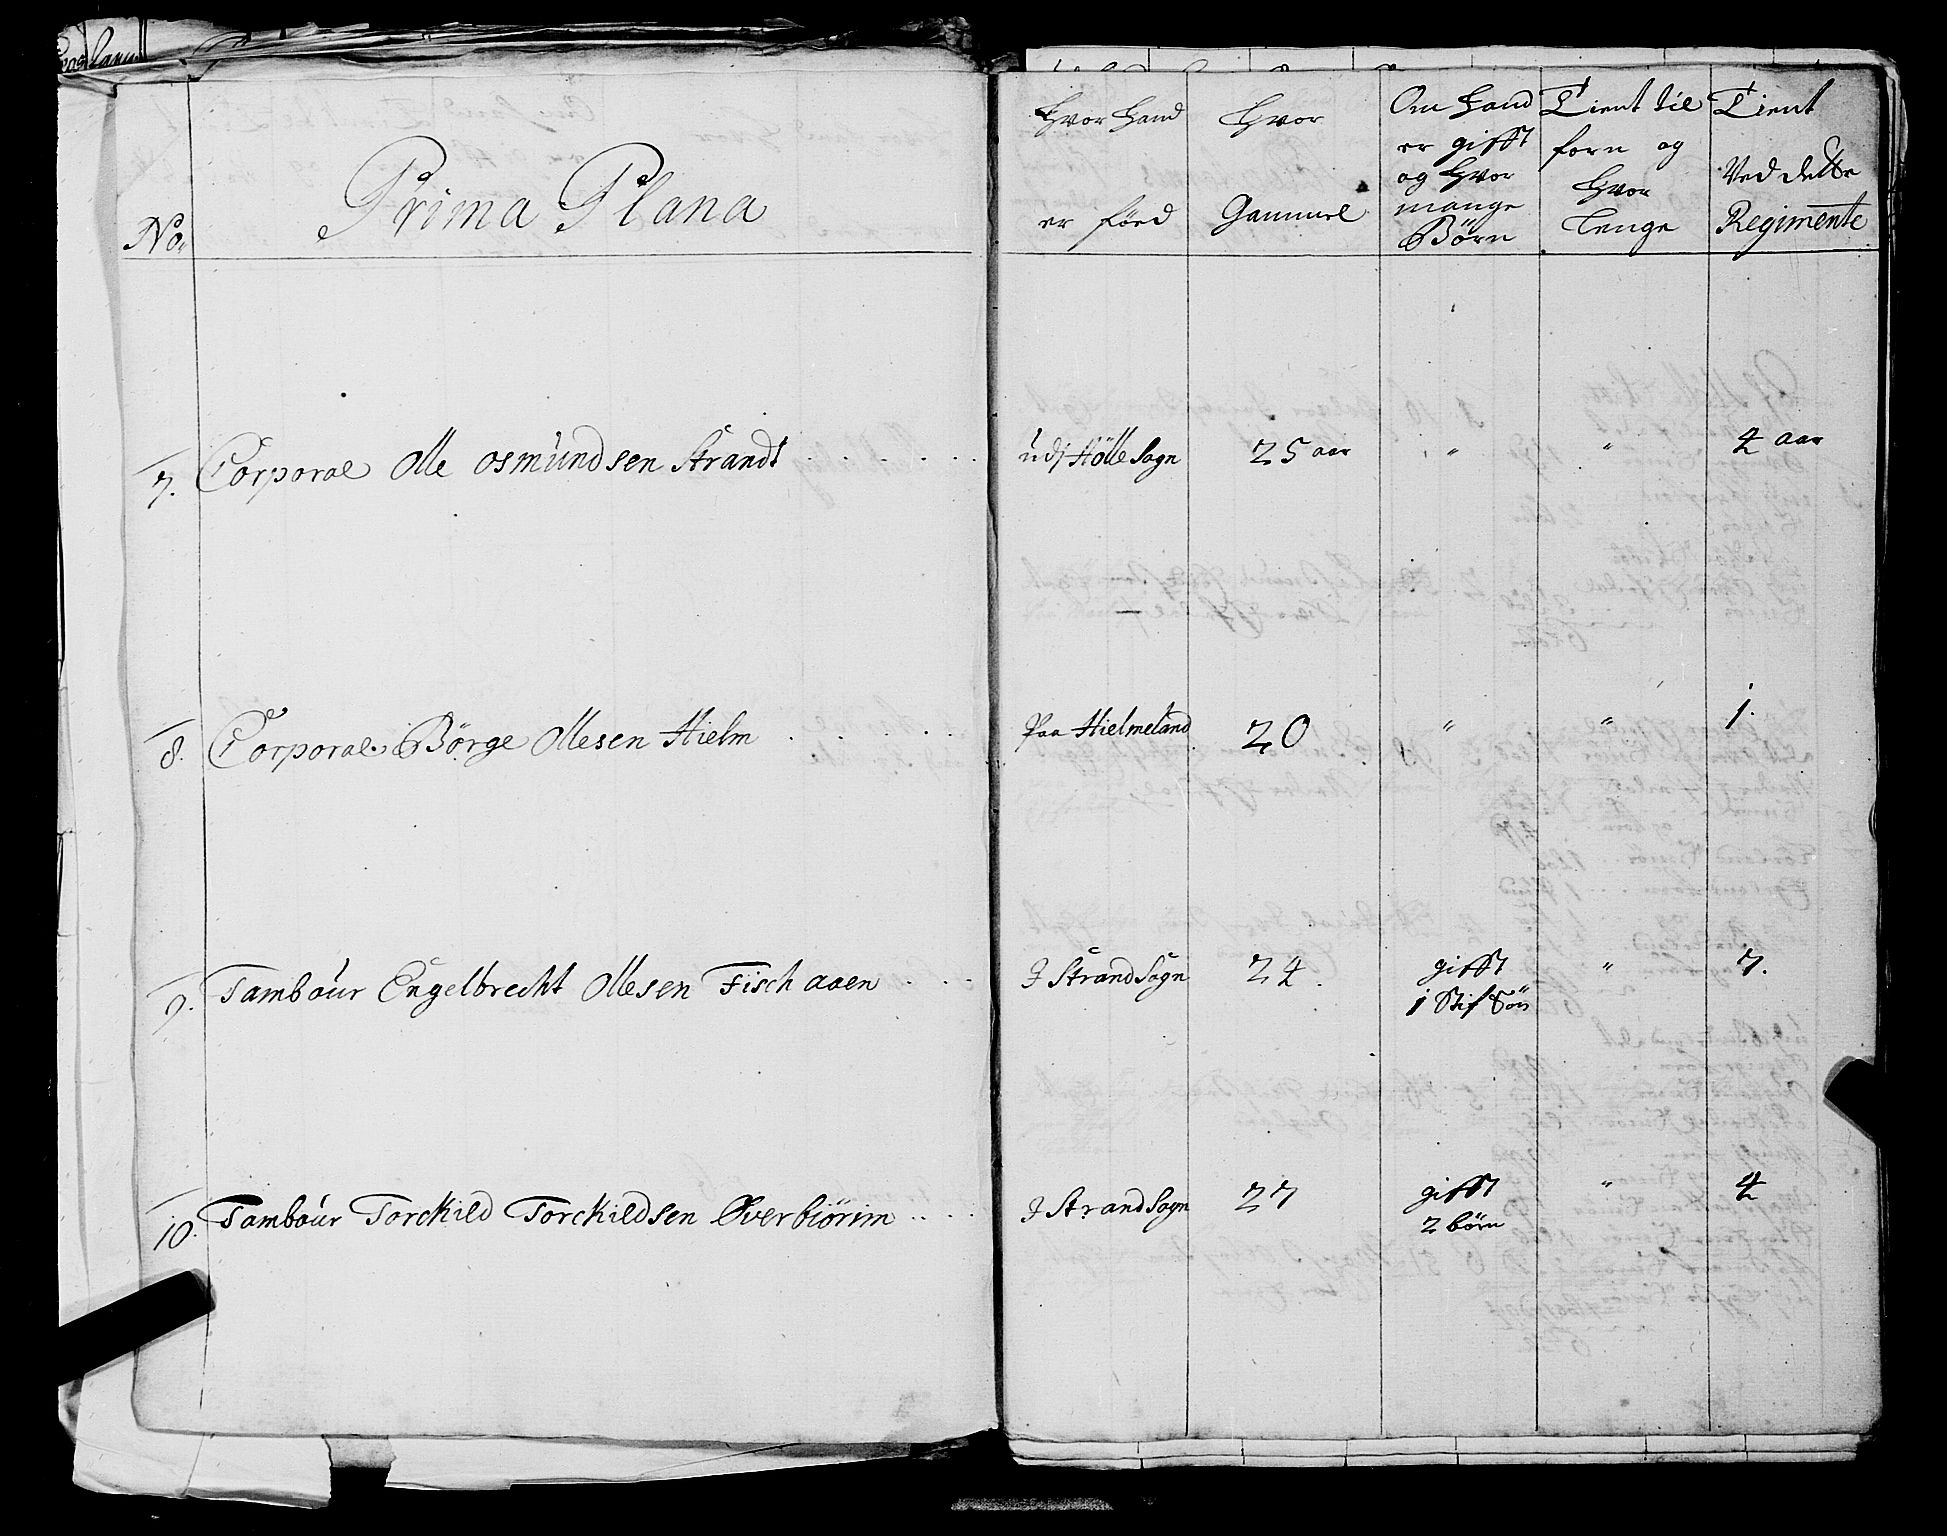 No.
Prima Plana
Hvor Hand
er föed
Hvor
Gammel
Om Hand
er gifft
og Hvor
mange
Börn
Tient til
forn og
Hvor
Lenge
Tient
Ved dette
Regimente
7. Corporal Olle Osmundsen Strandt
udj Hölle Sogn 25 aar " " 4 aar
8. Corporal Börge Ollesen Hielm
Paa Hielmeland 20 " " 1.
9. Tambour Engelbrecht Ollesen Fischaaen
J Strand Sogn 24. gifft " 7.
1 Stif Sön
10. Tambour Torckild Torckildsen Øverbiörim
J Strand Sogn 27 gifft " 4
2 börn